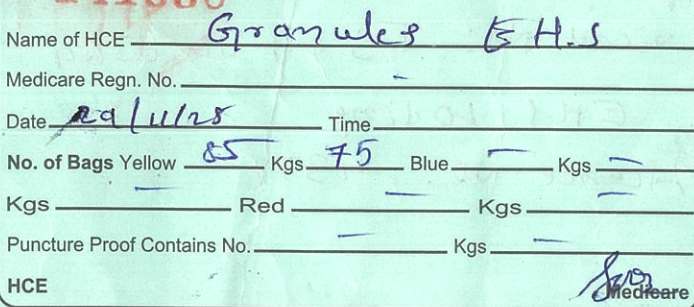 Name of HCE Granules EH.S
Medicare Regn. No. -
Date 29/11/25 Time
No. of Bags Yellow 85 Kgs 75 Blue - Kgs -
Kgs - Red - Kgs -
Puncture Proof Contains No. - Kgs -
HCE Medicare